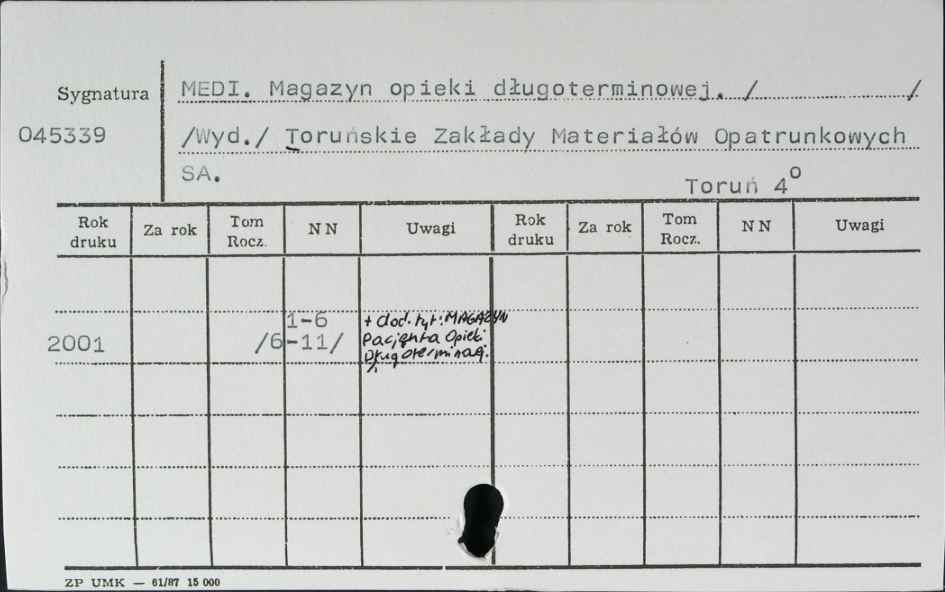 Sygnatura
045339
MEDI. Magazyn opieki długoterminowej. / /
/Wyd./ Toruńskie Zakłady Materiałów Opatrunkowych
SA.
Toruń 4⁰
Rok druku Za rok Tom Rocz. NN Uwagi Rok druku Za rok Tom Rocz. NN Uwagi
1-6
2001 /6-11/
+ dod. tyt: MAGAZYN
Pacjenta Opieki
Długoterminowej.
ZP UMK — 61/87 15 000